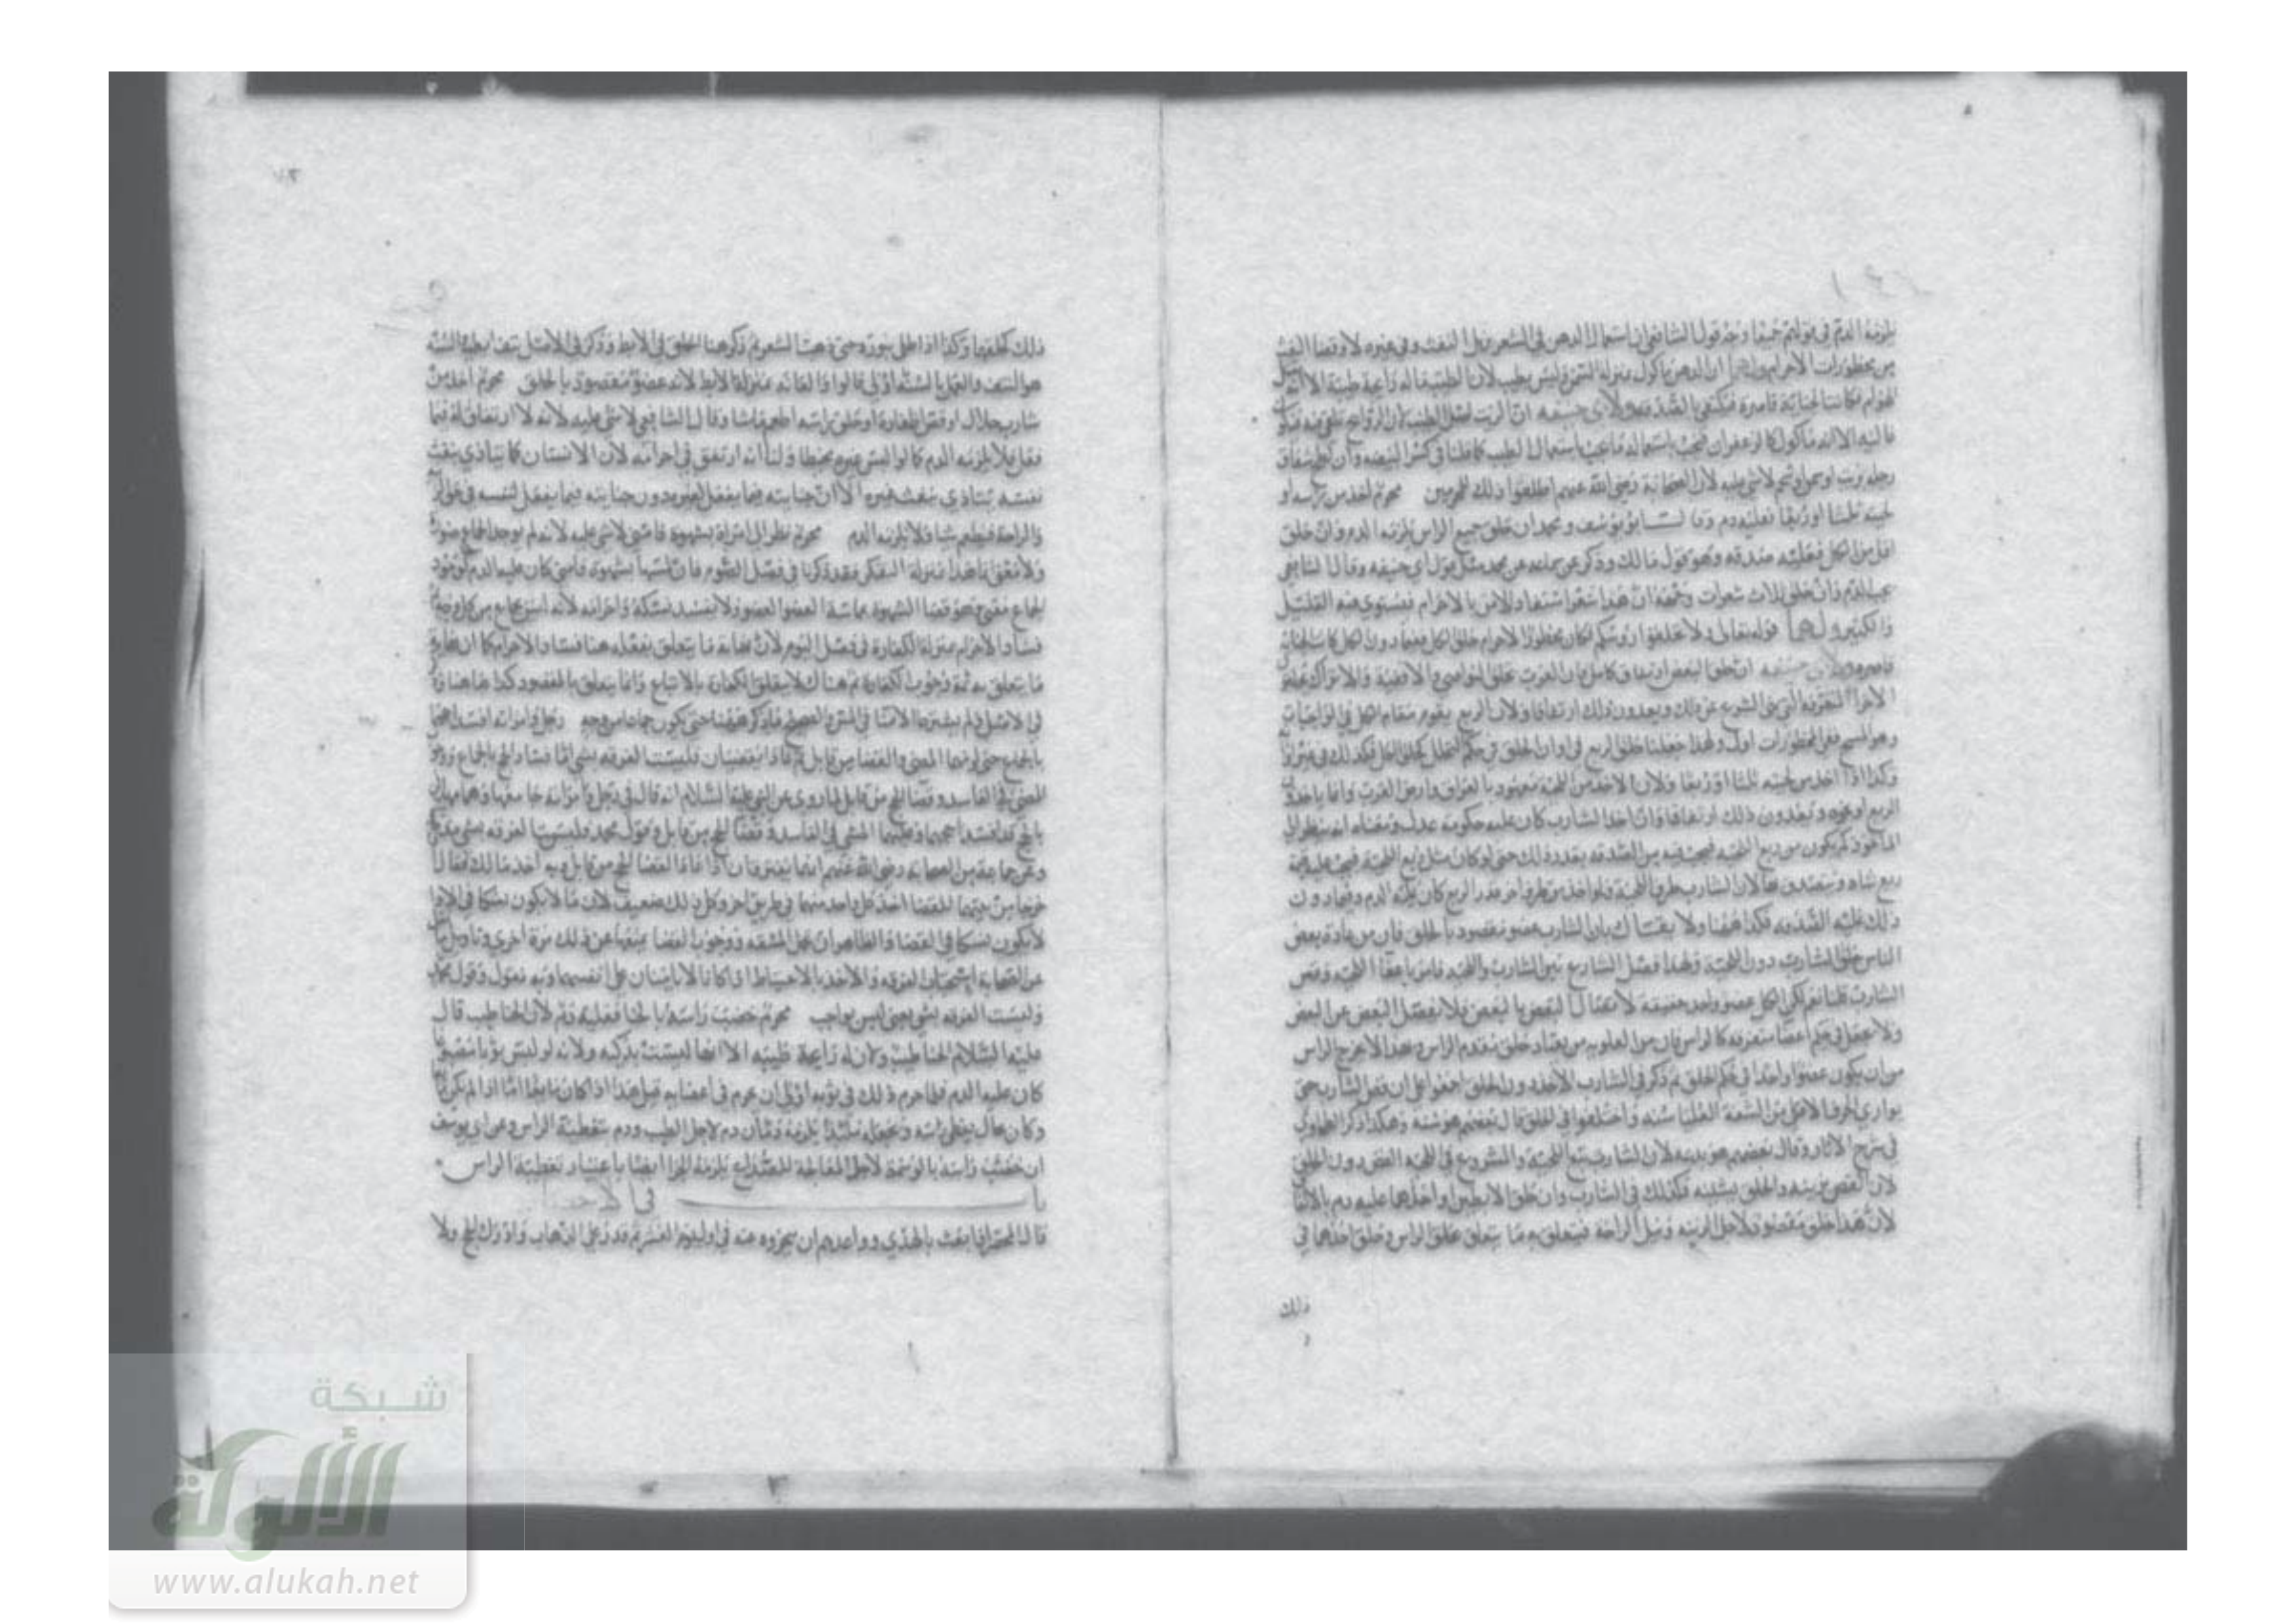 يلزمه الدم في قولهم جميعا وجه قول الشافعي ان استعمال الدهن في الشعر يزيل الشعث وفي غيره لا وقضا التفث
من محظورات الاحرام ولهما ان الدهن ماكول بمنزلة الشحم وليس بطيب لان الطيب ماله رايحة طيبة الا انه
الهوام فكانت الجناية قاصرة فيكتفي بالصدقة ولابي حنيفه ان الزيت اصل الطيب لان الروايح تلقى فيه
الا انه ماكول كالزعفران فيجب باستعماله ما يجب باستعمال الطيب كما قلنا في كسر البيضه وان شقاق
رجله بزيت او سمن او شحم لا شي عليه لان الصحابة رضي الله عنهم اطلقوا ذلك للمحرمين محرم اخذ من راسه او
لحيته ثلثا او ربعا فعليه دم وقال ابو يوسف ومحمد ان حلق جميع الراس يلزمه الدم وان حلق
اقل من الكل فعليه صدقه وهو قول مالك وذكر عن محمد مثل قول ابي حنيفه وقال الشافعي
يجب الدم وان حلق ثلاث شعرات وحجته ان هذا شعر استفاد الامن بالاحرام فيستوي فيه القليل
والكثير ولهما قوله تعالى ولا تحلقوا رؤسكم فكان محظور الاحرام حلق الكل فيما دون الكل كانت الجناية
قاصره ولابي حنيفه ان حلق البعض ارتفاق كامل فان العرب تحلق النواصي والاقفية والاتراك
ويعدون ذلك ارتفاقا ولان الربع يقوم مقام الكل في الواجبات
ولهذا جعلنا حلق الربع في اوان الحلق في حكم التحلل كحلق الكل فكذلك في غير
وكذا اذا اخذ من لحيته ثلثا او ربعا ولان الاخذ من اللحية معهود بالعراق وارض العرب
الربع او غيره ويعدون ذلك ارتفاقا وان اخذ الشارب كان عليه حكومة عدل ومعناه انه ينظر ان
الماخوذ كم يكون من ربع اللحية فيجب فيه من الصدقه بقدر ذلك حتى لو كان مثل ربع اللحية فيجب عليه قيمة
ربع شاه لان الشارب طرف اللحية ولو اخذ من طرف اخر قدر الربع كان عليه الدم وفيما دون
ذلك عليه الصدقه فكذا ههنا ولا يقال بان الشارب عضو مقصود بالحلق فان من عادة بعض
الناس حلق الشارب دون اللحية ولهذا فصل الشارع بين الشارب واللحية فامر باعفا اللحية وقص
الشارب قلنا نعم لكن الكل عضو واحد حقيقة لاتصال البعض بالبعض فلا يفصل البعض عن البعض
ولا يجعل في حكم اعضا متفرقه كالراس فان من العلويه من يعتاد حلق مقدم الراس وهذا لا يخرج الراس
من ان يكون عضوا واحدا في حكم الحلق ثم ذكر في الشارب الاخذ دون الحلق اجمعوا على ان قص الشارب حتى
يوازي الحرف الاعلى من الشفة العليا سنه واختلفوا في الحلق قال بعضهم هو سنة وهكذا ذكر الطحاوي
في شرح الاثار وقال بعضهم هو بدعه لان الشارب تبع اللحية والمشروع في اللحيه القص دون الحلق
لان القص يزينه والحلق يشينه فكذلك في الشارب وان حلق الابطين او احدهما عليه دم
لان هذا حلق مقصود لاجل الزينه ونيل الراحة فيتعلق به ما يتعلق بحلق الراس وحلق احدهما في
ذلك
ذلك كحلقهما وكذا اذا طلى بنورة حتى ذهب الشعر ثم ذكر هنا الحلق في الابط وذكر في الاصل نتف ابطيه السنة
هو النتف والعمل بالسنة اولى قالوا والعانه بمنزلة الابط لانه عضو مقصود بالحلق محرم اخذ من
شارب حلال او قص اظفاره او حلق راسه اطعم ماشا وقال الشافعي لا شي عليه لانه لا ارتفاق له فيما
فعل فلا يلزمه الدم كما لو البس غيره مخيطا ولنا انه ارتفق في احرامه لان الانسان كما يتاذى بتفث
نفسه يتاذى بتفث غيره الا ان جنايته فيما يفعل لغيره دون جنايته فيما يفعل لنفسه في
والراحة فيطعم شيا ولا يلزمه الدم محرم نظر الى امراة بشهوة فامنى لا شي عليه لانه لم يوجد الجماع صورة
ولا معنى فاخذا بمنزلة التفكر وقد ذكرنا في فصل الصوم فان لمسها بشهوة فامنى كان عليه الدم لوجود
الجماع معنى وهو قضا الشهوة بماسة العضو العضو ولا يفسد نسكه واحرامه لانه ليس بجماع من كل وجه
فساد الاحرام بمنزلة الكفارة في فصل الصوم لان ما يتعلق بفعله هنا فساد الاحرام كما ان
ما يتعلق به ثمة وجوب الكفارة ثم هناك لا يتعلق الكفارة بالاتباع وانما يتعلق بالمقصود كذا ههنا
في الاصل لم يشترط الامنا في المس والصحيح ما ذكر ههنا حتى يكون جماعا من وجه رجل وامراته افسدا حجهما
بالجماع حتى لزمهما المضي والقضا من قابل فاذا يقضيان فليست الفرقه بشي اما فساد الحج بالجماع
المضي في الفاسد وقضا الحج من قابل لما روي عن النبي عليه السلام انه قال في رجل وامراته جامعها وهما مهلان
بالحج قد افسدا حجهما وعليهما المضي في الفاسدة وقضا الحج من قابل وقول محمد وليست الفرقه بشي
وعن جماعة من الصحابه رضي الله عنهم انهما يفترقان اذا عادا لقضا الحج من قابل وبه اخذ مالك فقال اذا
خرجا من بيتهما للقضا اخذ كل واحد منهما في طريق اخر وكل ذلك ضعيف لان ما لا يكون نسكا في الادا
لا يكون نسكا في القضا والظاهر ان تحمل المشقه ووجوب القضا يمنعهما عن ذلك مرة اخرى وتاويل
عن الصحابة استحباب الفرقه والاخذ بالاحتياط اذا كانا لا يامنان على انفسهما وبه نقول وقول محمد
وليست الفرقه بشي يعني ليس بواجب محرم خضب راسه بالحنا فعليه دم لان الحنا طيب قال
عليه السلام الحنا طيب ولان له رايحة طيبه الا انها ليست بذكيه ولانه لو لبس ثوبا مصبوغا
كان عليه الدم فلما حرم ذلك في ثوبه اولى ان يحرم في اعضايه قيل هذا اذا كان مايعا اما اذا لم يكن
وكان بحال يغطي راسه وتجعله ملبدا يلزمه دمان دم لاجل الطيب ودم بتغطية الراس وعن ابي يوسف
ان خضب راسه بالوسمة لاجل المعالجة للصداع يلزمه الجزا ايضا باعتبار تغطية الراس
باب في الاحصار
قال المحصر اذا بعث بالهدي وواعدهم ان ينحروه عنه في اول يوم العشر ثم قدر على الذهاب وادراك الحج ولا
شبكة
الألوكة
www.alukah.net